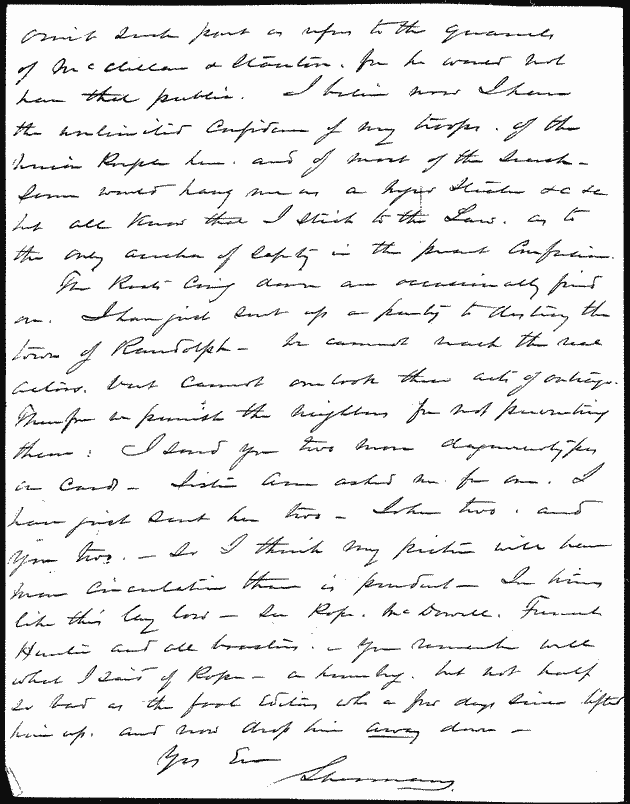 omit such part as refers to the quarrels
of McClellan & Stanton. for he would not
have that public. I believe now I have
the unlimited Confidence of my troops. of the
Union People here. and of most of the Secesh –
Some would hang me as a &c &c
but all Know that I stick to the Law. as to
the only anchor of Safety in the present Confusion.
The Boats Coming down are occasionally fired
on. I have just sent up a party to destroy the
town of Randolph – We cannot reach the real
actors, but cannot overlook these acts of outrage.
Therefore we punish the neighbors for not preventing
them: I send you two more daguerreotypes
on Card – Sister Ann asked me for one. I
have just sent her two – John two. and
you two. – So I think my picture will have
more Circulation than is prudent – In times
like this lay low – See Pope. McDowell. Fremont
Hunter and all boasters. – You remember well
what I said of Pope – a humbug. but not half
so bad as the fool Editors who a few days since lifted
him up. and now drop him away down –
Yrs Ever
Sherman.